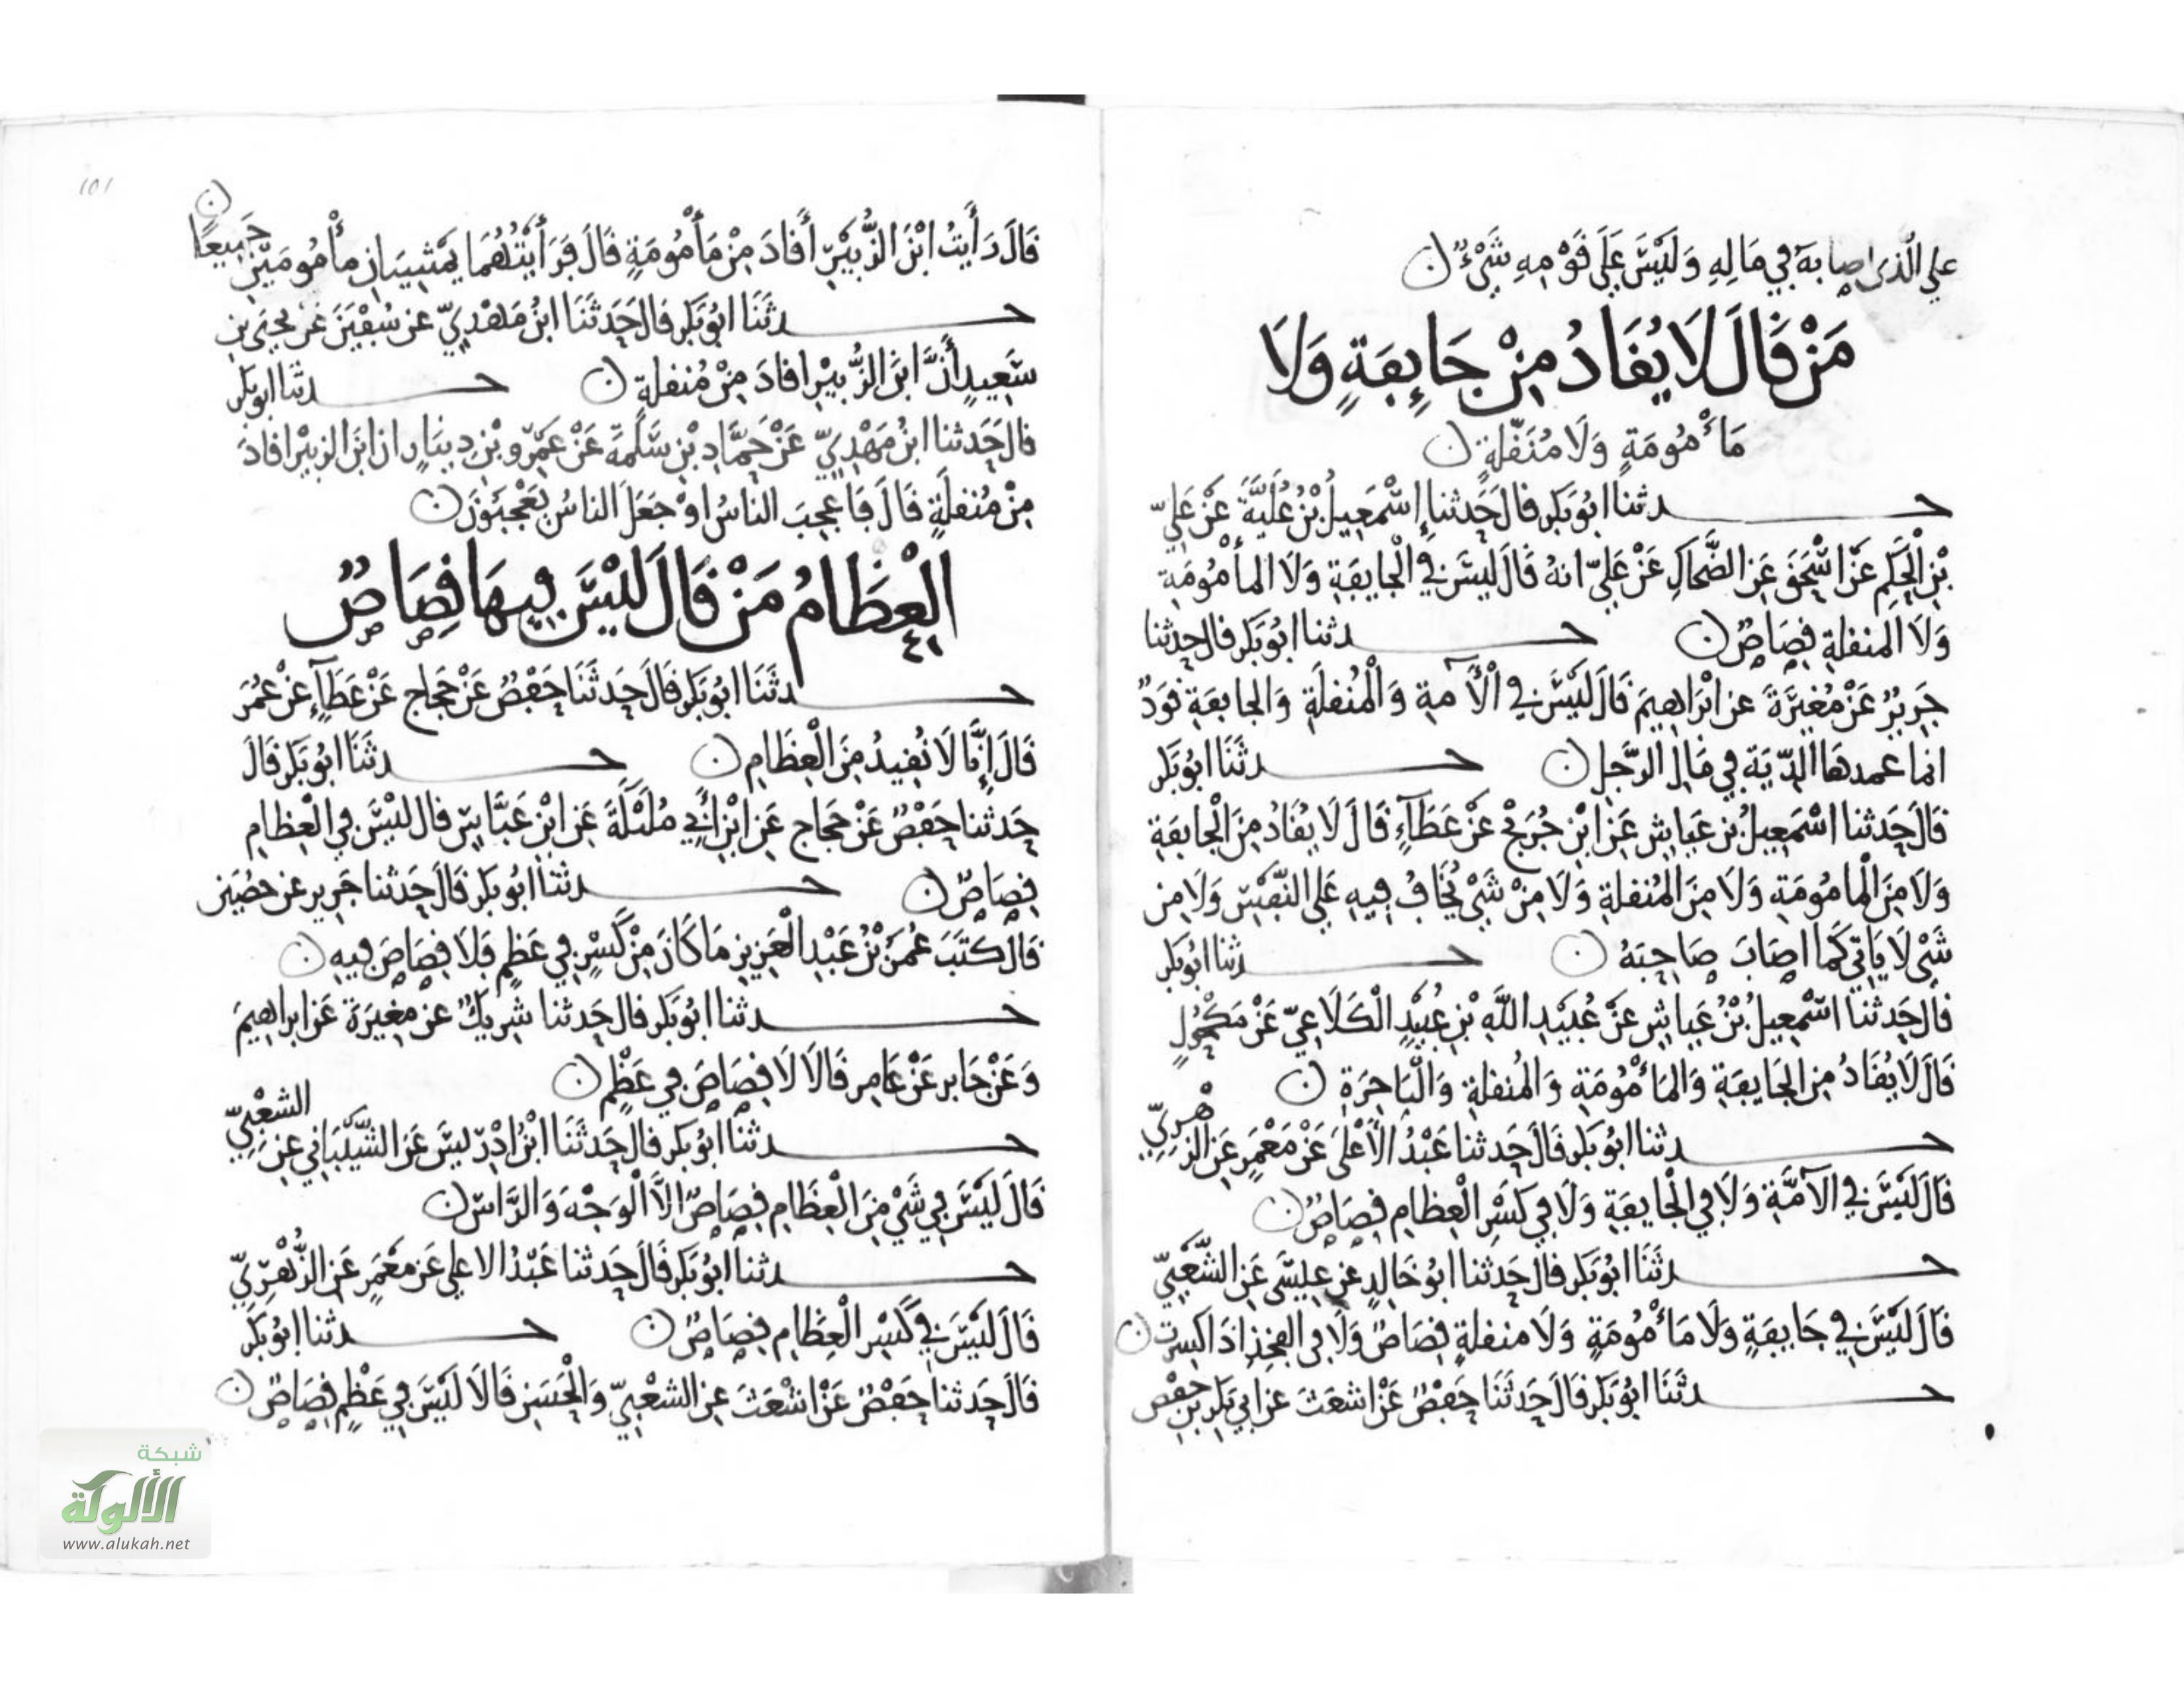 علي الذى اصابه في مَالِهِ وَلَيْسَ عَلَى قَوْمِهِ شَيْءٌ ن
مَنْ قَالَ لَا يُقَادُ مِنْ جَايِفَةٍ وَلَا
مَأْمُومَةٍ وَلَا مُنَقّلَةٍ ن
حدثنا ابُو بَكر قال حَدثنا إسْمَعِيلُ بْنُ عُلَيَّةَ عَنْ عَلِيّ
بْنِ الْحَكَمِ عَن اسْحَقَ عَنِ الضَّحاكِ عَنْ عَلِيّ انهُ قَالَ لَيْسَ في الْجايفَةِ وَلَا المأمُومَةِ
وَلَا المنقلةِ قِصَاصٌ ن حدثنا ابُو بَكر قال حدثنا
جَرِيرُ عَنْ مُغيَرَةَ عن ابْرَاهِيمَ قَالَ لَيْسَ في الْآمةِ وَالْمُنقلَةِ وَالجايفَةِ قَوَدٌ
انما عمدهَا الدّيَة فِي مَالِ الرَّجلِ ن حدثَنَا ابُو بَكر
قَالَ حَدثنا اسْمَعِيلُ بن عَيَاشٍ عَنِ ابْنِ جُرَيْجٍ عَنْ عَطَآءٍ قَالَ لَا يُقَادُ مِنَ الْجايفَةِ
وَلَا مِنَ الْمامُومَةِ وَلَا مِنَ الْمُنقلةِ وَلَا مِنْ شَيْ يُخَافُ فِيهِ عَلَي النَّفْسِ وَلَا مِن
شَيْ لَا يَاتِي كَمَا اصَابَ صَاحِبَهُ ن حدثنا ابُو بَكر
قال حَدثنا اسْمعِيلُ بْنُ عَياشٍ عَنْ عُبَيْدِ اللَّهِ بْنِ عُبَيْدٍ الْكَلَاعِيّ عَنْ مَكْحُولٍ
قَالَ لَا يُقَادُ مِن الجَايفَةِ وَالمَأْمُومَةِ وَالْمُنقلةِ وَالْنَاخِرَةِ ن
حدثنا ابُو بَكر قَالَ حَدثنا عَبْدُ الْأَعْلَى عَنْ مَعْمَرٍ عَنِ الزُهْرِيّ
قَالَ لَيْسَ في الآمَّةِ وَلَا في الْجايفَةِ وَلَا فِي كَسْرِ الْعِظامِ قِصَاصٌ ن
حدثَنَا ابُو بَكر قال حَدثنا ابُو خَالِدٍ عن عِيسَى عَنِ الشَّعْبِيّ
قَالَ لَيْسَ فِي جَايفَةٍ وَلَا مَأْمُومَةٍ وَلَا منقلةٍ قِصَاصٌ وَلَا في الفخِذِ اذَا كسرت ن
حدثَنَا ابُو بَكر قَالَ حَدثَنَا حَفْصٌ عَنْ اشعَثَ عن ابي بَكرِ بْنِ حفص
101
قَالَ رَأَيتُ ابْنَ الزُّبَيْرِ أَقادَ مِنْ مَأمُومَةٍ قَالَ فَرَأَيْتُهُمَا يَمْشِيَانِ مأمُومَيْنِ جَمِيعًا ن
حدثَنَا ابُو بَكر قال حَدثَنَا ابنُ مَهْدِيّ عن سُفْيَنَ عَنْ يحيَى بنِ
سَعِيدٍ أَنَّ ابنَ الزُّبيْرِ اقادَ مِنْ مُنقلةٍ ن حدثنا ابو بكر
قال حَدثنا ابنُ مَهْدِيّ عَنْ حَمَّادِ بْنِ سَلَمةَ عَنْ عَمْرِو بْنِ دينَارٍ ان ابنَ الزبيْرِ اقادَ
مِنْ مُنقلَةٍ قَالَ فَاعجِبَ الناسُ اوْ جَعَلَ الناسُ يَعْجَبُونَ ن
الْعِظَامُ مَنْ قَالَ لَيْسَ فِيهَا قِصَاصٌ
حدثَنَا ابُو بَكر قَالَ حَدثَنَا حَفْصٌ عَنْ حَجاج عَنْ عَطَآءٍ عَنْ عُمَرَ
قَالَ إِنَّا لَا نُقِيدُ مِنَ الْعِظَامِ ن حدثَنَا ابُو بَكر قَالَ
حَدثنا حَفْصٌ عَنْ حَجَاج عَنِ ابْنِ أَبِي مُلَيْكَةَ عَنِ ابْنِ عَبَّاسٍ قال لَيْسَ في الْعِظامِ
قِصَاصٌ ن حدثنا ابُو بَكر قَالَ حَدثنا جَرِير عن حصَين
قَالَ كتَبَ عُمَرُ بْنُ عَبْدِ الْعَزِيزِ مَا كَانَ مِنْ كَسْرٍ فِي عَظمٍ فَلَا قِصَاصَ فيهِ ن
حدثنا ابُو بَكر قال حَدثنا شَرِيكٌ عن مغيَرَةَ عَن ابراهيمَ
وَعَنْ جَابر عَنْ عَامر قَالَا لَا قِصَاصَ في عَظْمٍ ن
حدثنا ابُو بَكر قال حَدثَنَا ابْنُ ادْرِيسَ عَنِ الشَّيْبَانِي عن الشعْبِيّ
قَالَ لَيْسَ في شَيْ مِنَ الْعِظَامِ قِصَاصٌ الَّا الْوَجْهَ وَالرَّاسَ ن
حدثنا ابُو بَكر قَالَ حَدثنا عَبْدُ الاعلي عَن مَعْمَرٍ عَنِ الزُّهْرِيّ
قَالَ لَيْسَ فِي كَسْرِ الْعِظَامِ قِصَاصٌ ن حدثنا ابُو بَكر
قَالَ حَدثنا حَفْصٌ عَنْ اشْعَثَ عن الشعْبِيّ وَالْحَسَنِ قَالَا لَيْسَ فِي عَظْمٍ قِصَاصٌ ن
شبكة
الألوكة
www.alukah.net